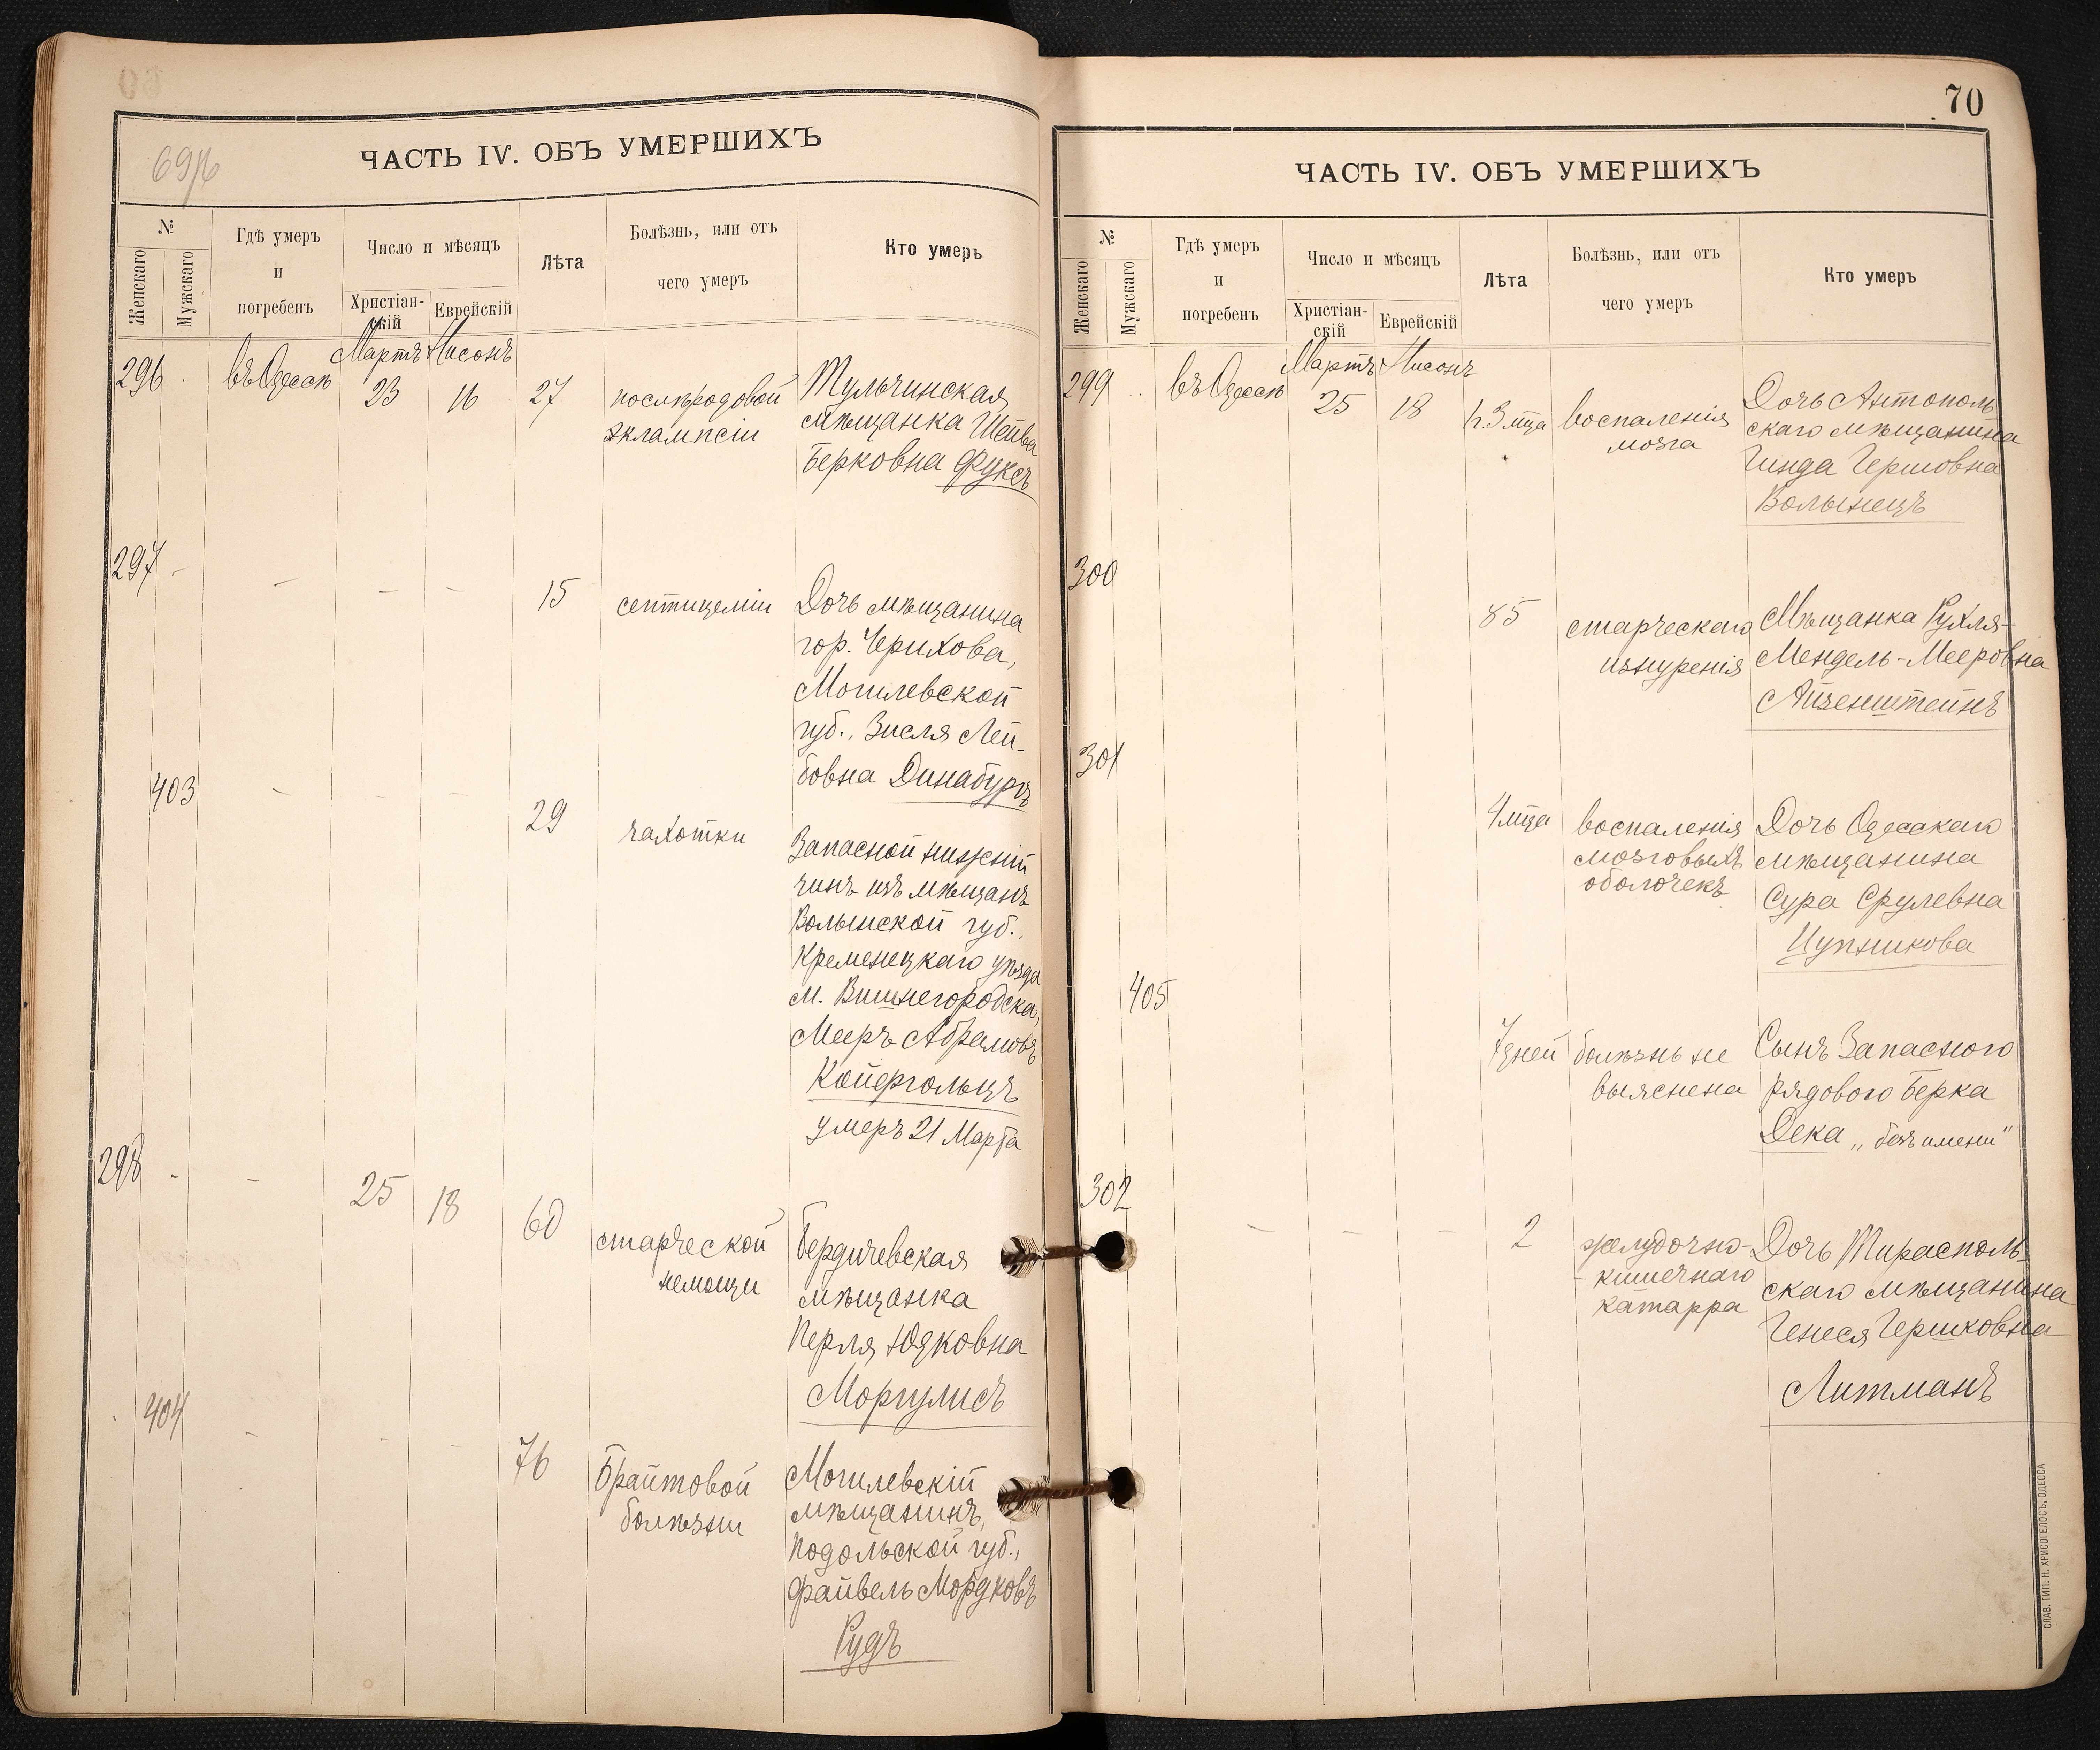 ЧАСТЬ IV. ОБЪ УМЕРШИХЪ
№
Женскаго
Мужскаго
Гдѣ умеръ
и
погребенъ
Число и мѣсяцъ
Христіан-
скій
Еврейскій
Лѣта
Болѣзнь, или отъ
чего умеръ
Кто умеръ
Мартъ Нисонъ
296 въ Одессѣ 23 16 27
послѣродовой
эклампсіи
Тульчинская
мѣщанка Шейва
Берковна Фуксъ
297 - - - - 15
септицеміи
Дочь мѣщанина
гор. Черикова,
Могилевской
губ., Зисля Лей-
бовна Динабургъ
403 - - - 29
чахотки
Запасной нижній
чинъ изъ мѣщанъ
Волынской губ.,
Кременецкаго уѣзда
м. Вишнегородска,
Мееръ Абрамовъ
Койфгольцъ
умеръ 21 Марта
298 - - 25 18 60
старческой
немощи
Бердичевская
мѣщанка
Перля Юдковна
Моргулисъ
404 - - - 76
Брайтовой
болѣзни
Могилевскій
мѣщанинъ,
Подольской губ.,
Файвель Мордковъ
Рудъ
70
ЧАСТЬ IV. ОБЪ УМЕРШИХЪ
№
Женскаго
Мужскаго
Гдѣ умеръ
и
погребенъ
Число и мѣсяцъ
Христіан-
скій
Еврейскій
Лѣта
Болѣзнь, или отъ
чего умеръ
Кто умеръ
Мартъ Нисонъ
299 въ Одессѣ 25 18 мца
воспаленія
мозга
Дочь Антополь
скаго мѣщанина
Гинда Гершовна
Волынецъ
300
85
старческаго
изнуренія
Мѣщанка Рухля-
Мендель-Мееровна
Айзенштейнъ
301
4 мца
воспаленія
мозговыхъ
оболочекъ
Дочь Одесскаго
мѣщанина
Сура Срулевна
Цупникова
405
7 дней
болѣзнь не
выяснена
Сынъ Запасного
рядового Берка
Дека „безъ имени"
302 - - - 2
желудочно-
- кишечнаго
катарра
Дочь Тирасполь-
скаго мѣщанина
Генеся Гершковна
Литманъ
СЛАВ. ТИП. Н. ХРИСОГЕЛОСЪ, ОДЕССА